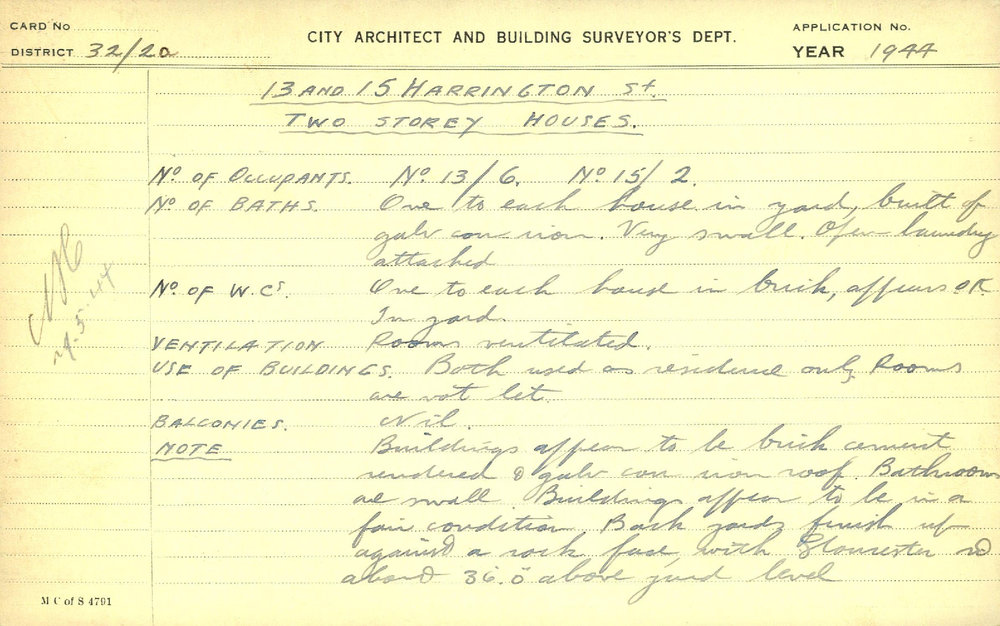 CARD No
CITY ARCHITECT AND BUILDING SURVEYOR'S DEPT.
APPLICATION No.
DISTRICT 32/20
YEAR 1944
13 AND 15 HARRINGTON St.
TWO STOREY HOUSES.
No OF OCCUPANTS. No 13/6. No 15/2.
No OF BATHS. One to each house in yard, built of
galv corr iron. Very small. Open laundry
attached
No OF W.Cs. One to each house in brick, appears OK.
In yard.
VENTILATION Rooms ventilated.
USE OF BUILDINGS. Both used as residence only. Rooms
are not let.
BALCONIES. Nil.
NOTE Buildings appear to be brick cement
rendered & galv corr iron roof. Bathrooms
are small. Buildings appear to be in a
fair condition. Back yards finish up
against a rock face, with Gloucester rd
about 36.0 above yard level
29.5.44
M C of S 4791